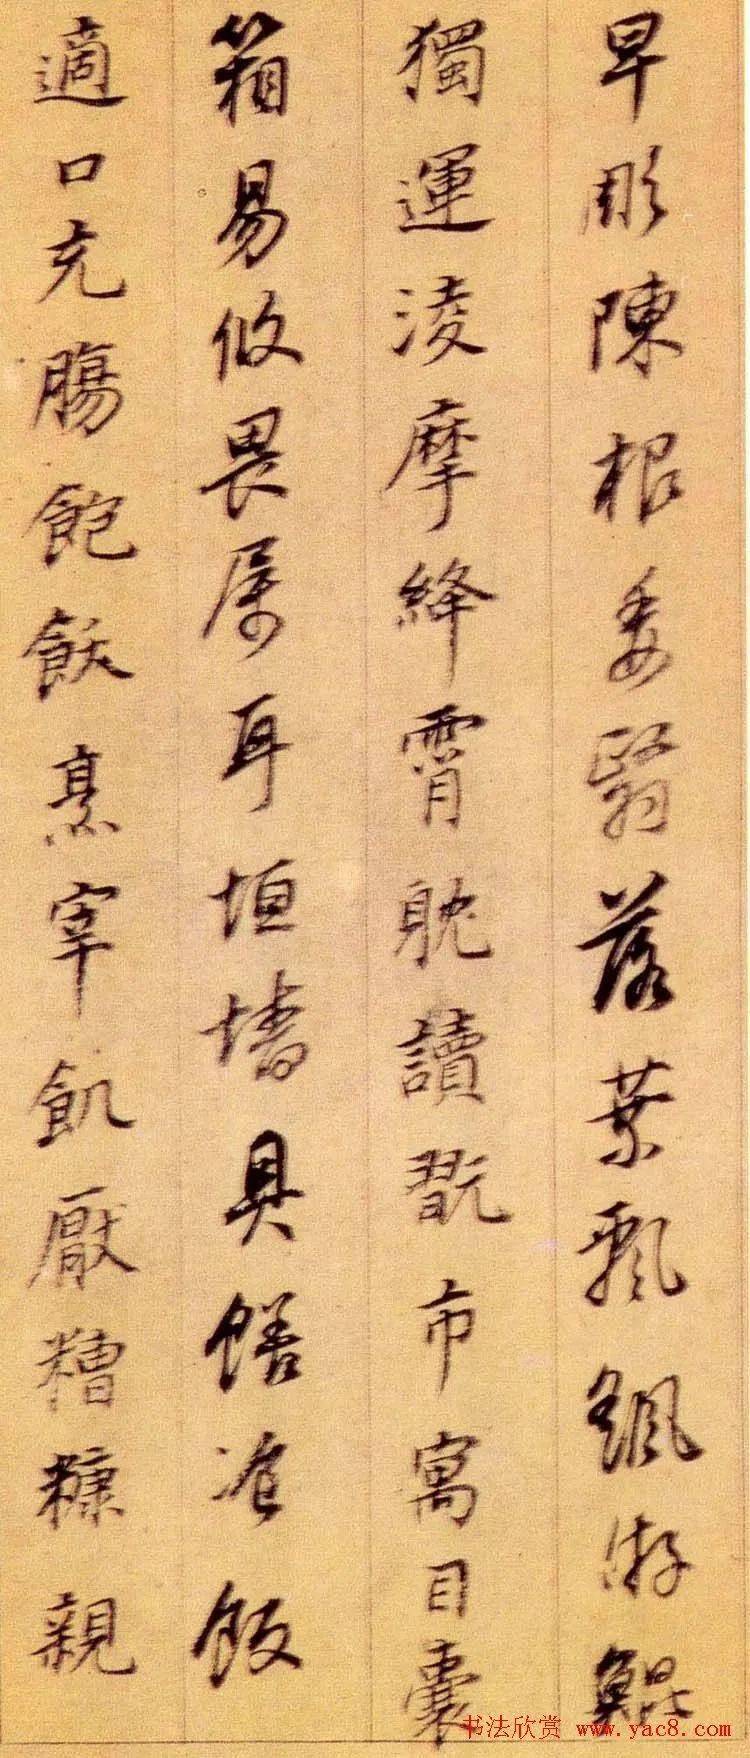 早彫陳根委翳落葉飄飖游鯤
獨運淩摩絳霄耽讀翫市寓目囊
箱易攸畏属耳垣墻具饍飡飯
適口充腸飽飫烹宰飢厭糟糠親
书法欣赏 www.yac8.com